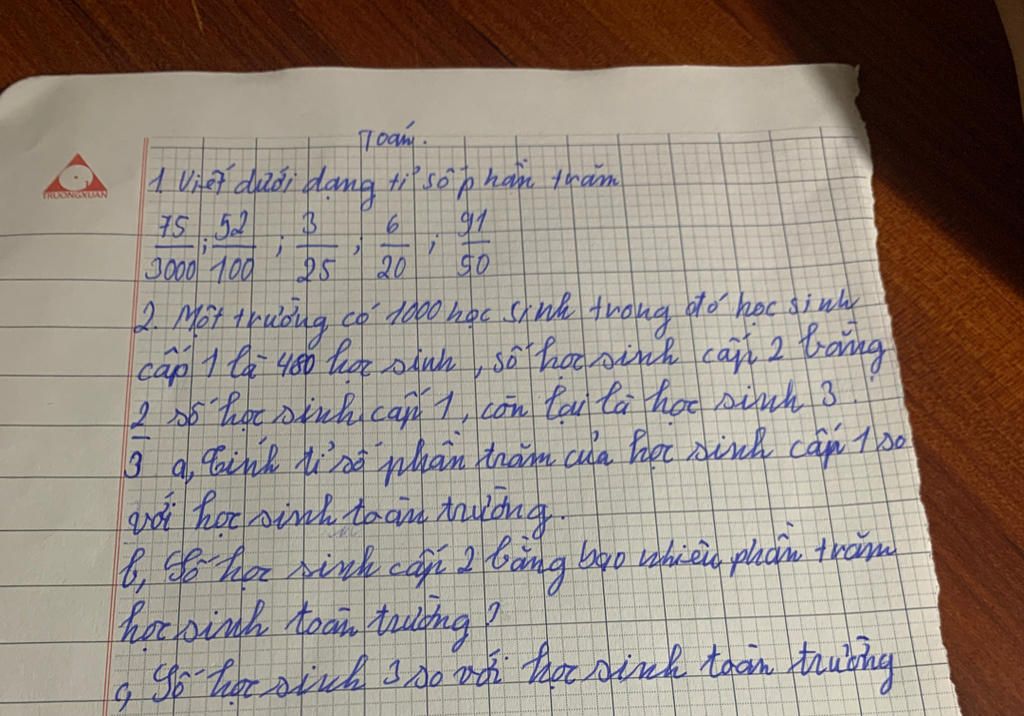 Toán.
TRUONGXUAN
1. Viết dưới dạng tỉ số phần trăm
75/3000 ; 52/100 ; 3/25 ; 6/20 ; 91/50
2. Một trường có 1000 học sinh trong đó học sinh
cấp 1 là 480 học sinh, số học sinh cấp 2 bằng
2/3 số học sinh cấp 1, còn lại là học sinh 3.
a, Tính tỉ số phần trăm của học sinh cấp 1 so
với học sinh toàn trường.
b, Số học sinh cấp 2 bằng bao nhiêu phần trăm
học sinh toàn trường?
c, Số học sinh 3 so với học sinh toàn trường